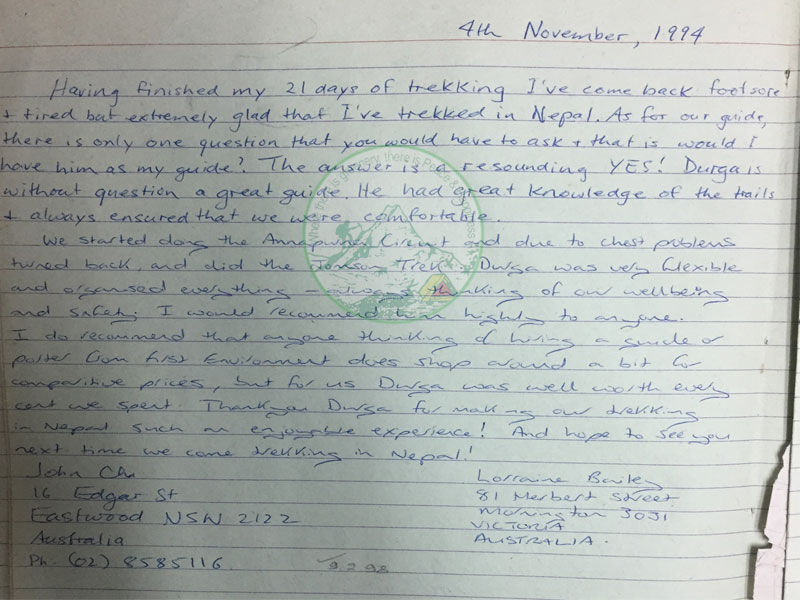 4th November, 1994
Having finished my 21 days of trekking I've come back footsore
+ tired but extremely glad that I've trekked in Nepal. As for our guide,
there is only one question that you would have to ask + that is would I
have him as my guide? The answer is a resounding YES! Durga is
without question a great guide. He had great knowledge of the trails
+ always ensured that we were comfortable.
We started doing the Annapurna Circuit and due to chest problems
turned back, and did the Jomsom Trek. Durga was very flexible
and organised everything always thinking of our wellbeing
and safety. I would recommend him highly to anyone.
I do recommend that anyone thinking of hiring a guide or
porter from first Environment does shop around a bit for
competitive prices, but for us Durga was well worth every
cent we spent. Thankyou Durga for making our trekking
in Nepal such an enjoyable experience! And hope to see you
next time we come trekking in Nepal!
John Chu
16 Edgar St
Eastwood NSW 2122
Australia
Ph. (02) 8585116.
Lorraine Bailey
81 Herbert Street
Mornington 3031
VICTORIA
AUSTRALIA.
9 2 98